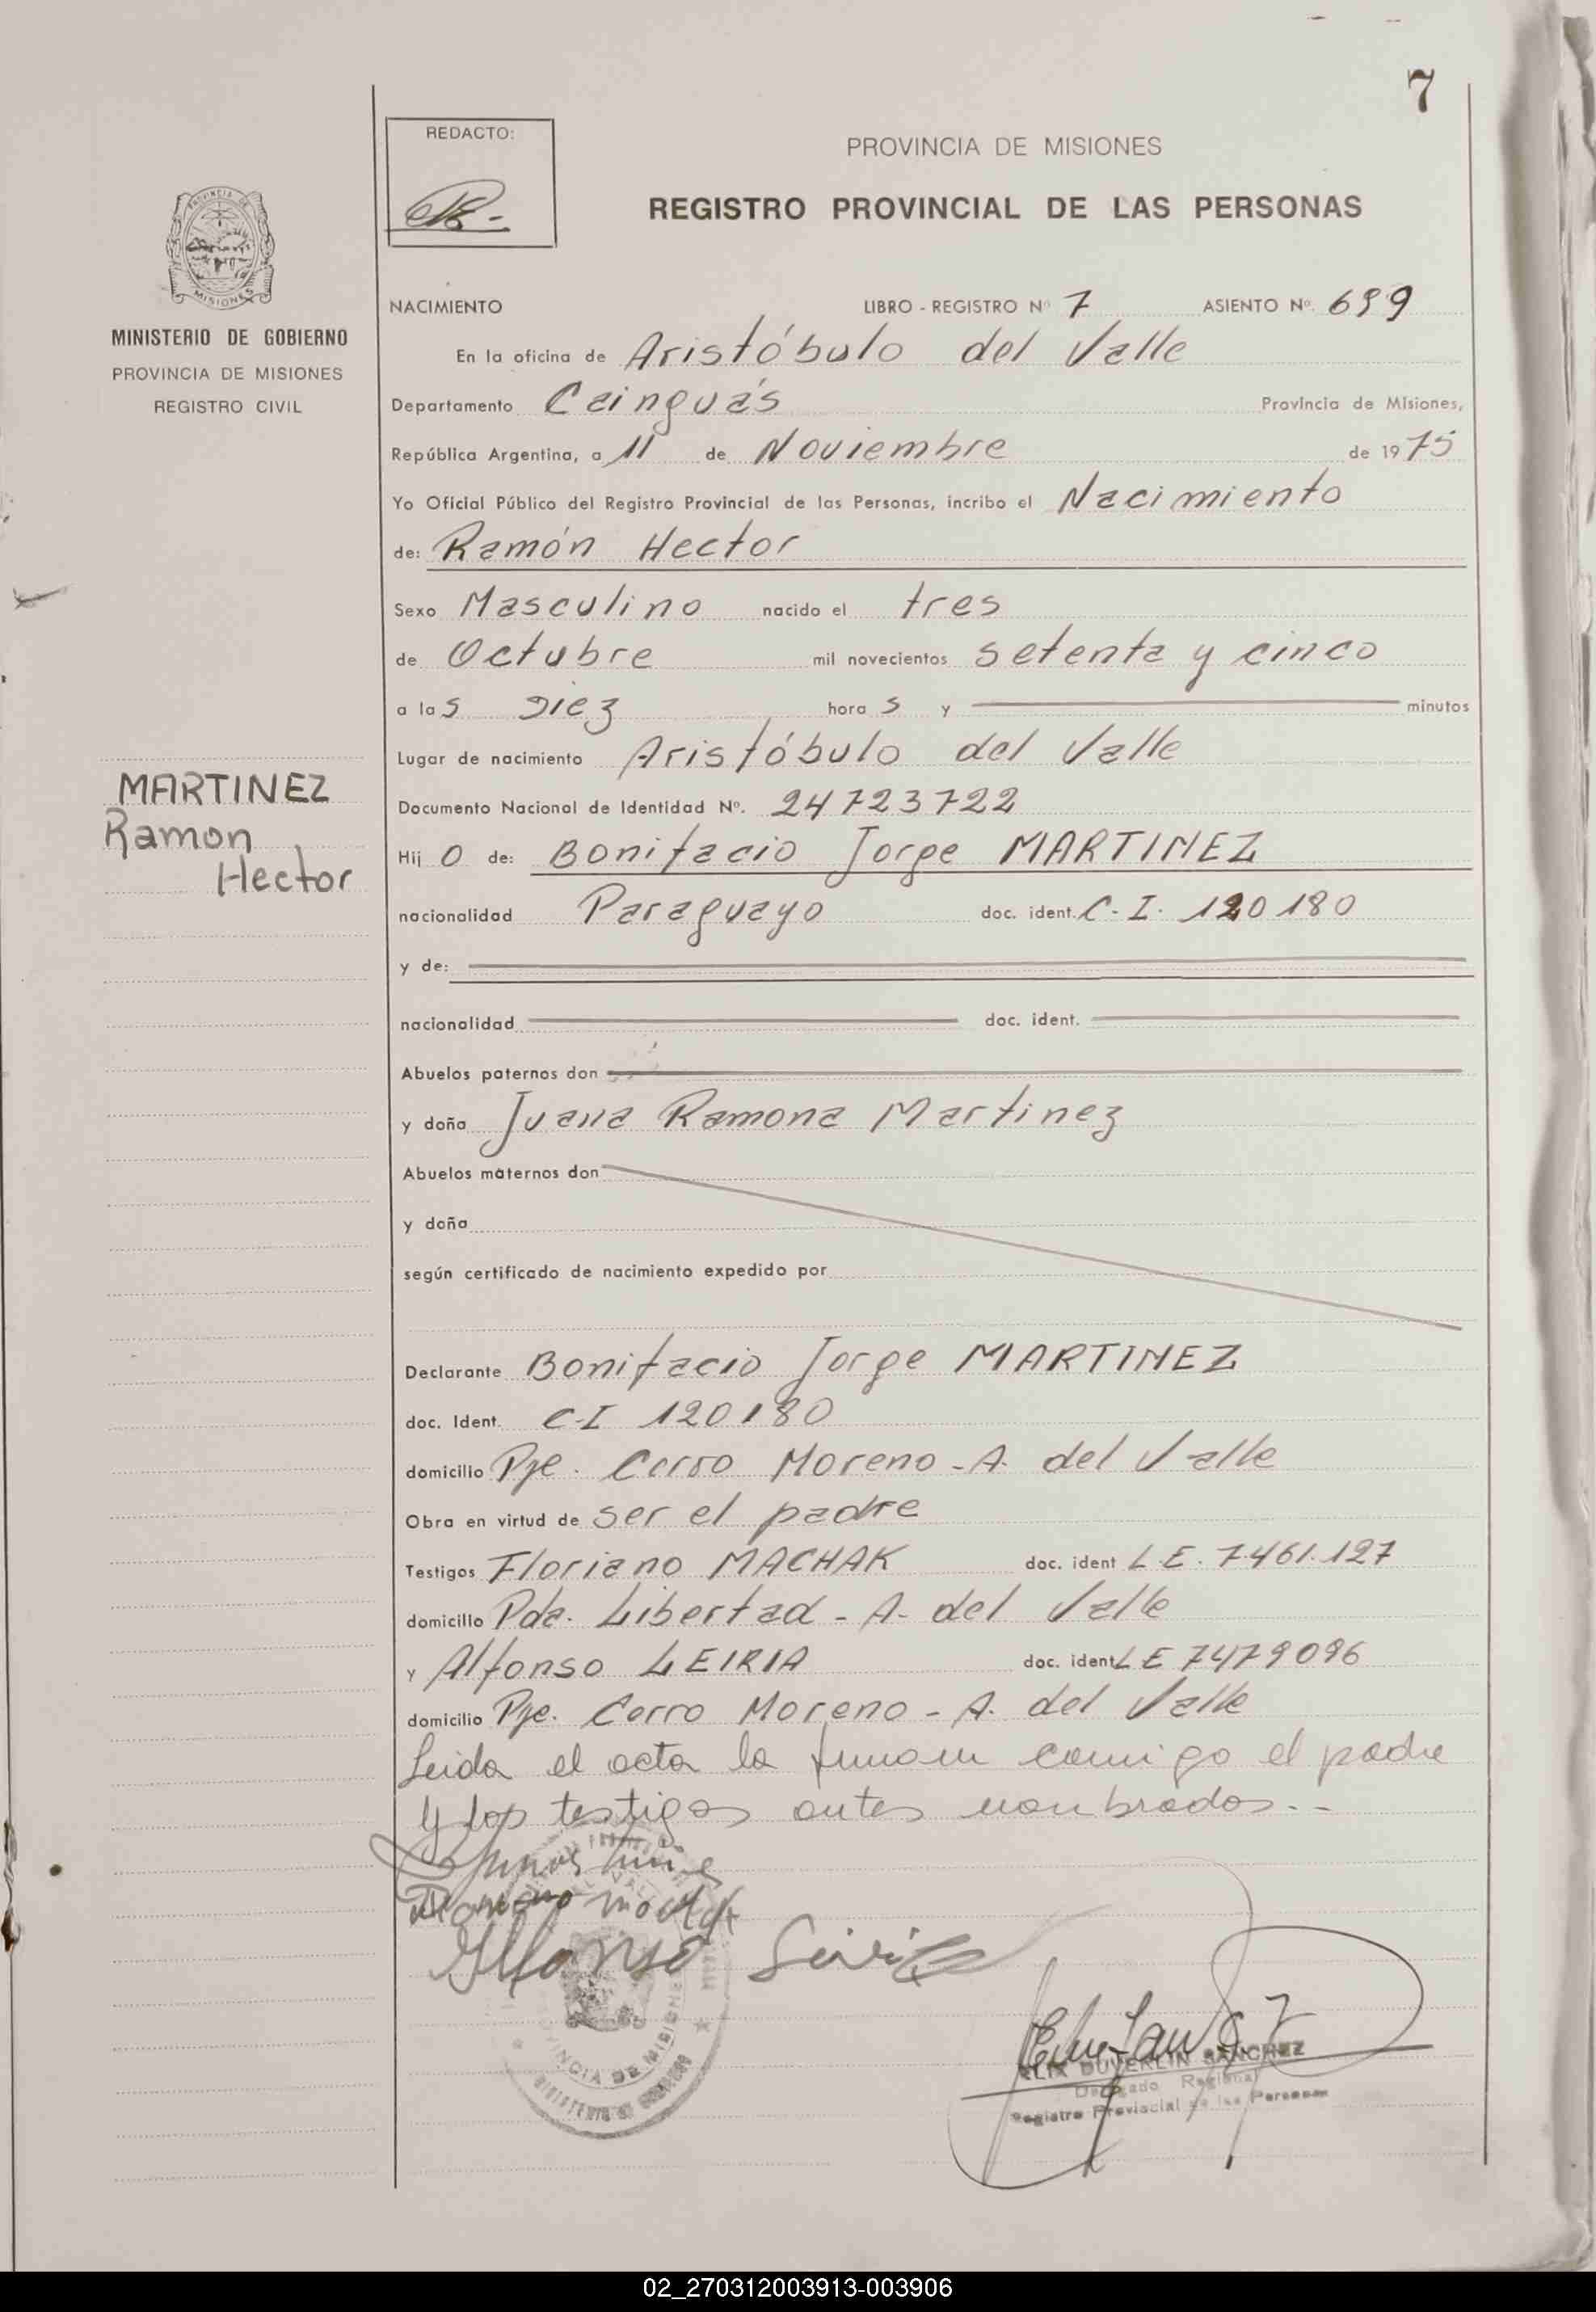 7
REDACTO:
PROVINCIA DE MISIONES
REGISTRO PROVINCIAL DE LAS PERSONAS
PROVINCIA DE
MISIONES
MINISTERIO DE GOBIERNO
PROVINCIA DE MISIONES
REGISTRO CIVIL
NACIMIENTO LIBRO - REGISTRO Nº 7 ASIENTO Nº. 699
En la oficina de Aristóbulo del Valle
Departamento Cainguás Provincia de Misiones,
República Argentina, a 11 de Noviembre de 1975
Yo Oficial Público del Registro Provincial de las Personas, incribo el Nacimiento
de: Ramón Hector
Sexo Masculino nacido el tres
de Octubre mil novecientos setenta y cinco
a las Diez horas y minutos
Lugar de nacimiento Aristóbulo del Valle
MARTINEZ
Ramon
Hector
Documento Nacional de Identidad Nº. 24723722
Hijo de: Bonifacio Jorge MARTINEZ
nacionalidad Paraguayo doc. ident. C. I. 120180
y de:
nacionalidad doc. ident.
Abuelos paternos don
y doña Juana Ramona Martinez
Abuelos maternos don
y doña
según certificado de nacimiento expedido por
Declarante Bonifacio Jorge MARTINEZ
doc. Ident. C-I 120180
domicilio Pje. Cerro Moreno - A. del Valle
Obra en virtud de ser el padre
Testigos Floriano MACHAK doc. ident L.E. 7.461.127
domicilio Pda. Libertad - A. del Valle
y Alfonso LEIRIA doc. ident LE 7479096
domicilio Pje. Cerro Moreno - A. del Valle
Leida el acta la firman comigo el padre
y los testigos antes nombrados.-
Alfonso Leiria
PROVINCIA DE MISIONES
MINISTERIO DE GOBIERNO
DUVERLIN SANCHEZ
Delegado Regional
Registro Provincial de las Personas
02_270312003913-003906